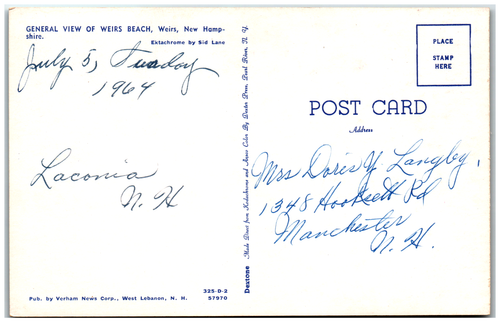 GENERAL VIEW OF WEIRS BEACH, Weirs, New Hamp-
shire.
Ektachrome by Sid Lane
July 5, Tuesday
1964
Laconia
N. H
325-D-2
Pub. by Verham News Corp., West Lebanon, N. H. 57970
Dextone Made Direct from Kodachrome and Ansco Color By Dexter Press, West Nyack, N. Y.
PLACE
STAMP
HERE
POST CARD
Address
Mrs Doris Y. Langley,
1348 Hooksett Rd
Manchester
N. H.